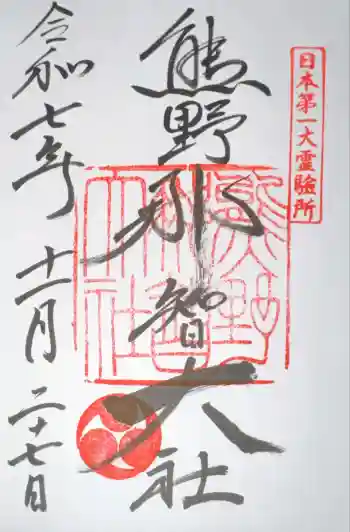 日本第一大霊験所
熊野那智大社
令和七年 十一月 二十七日